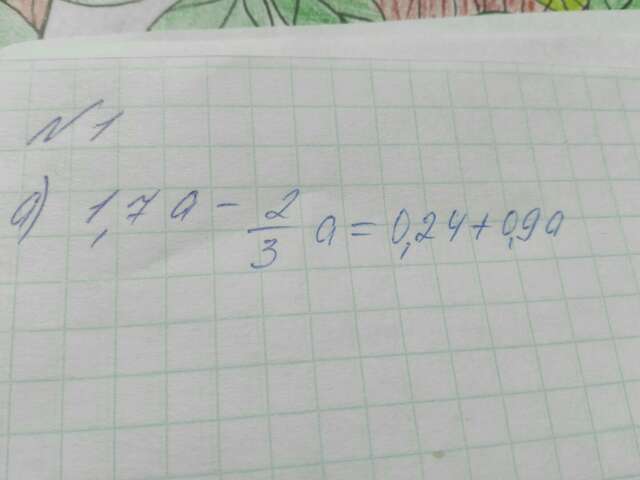 №1
а) 1,7а - 2/3 а = 0,24 + 0,9а